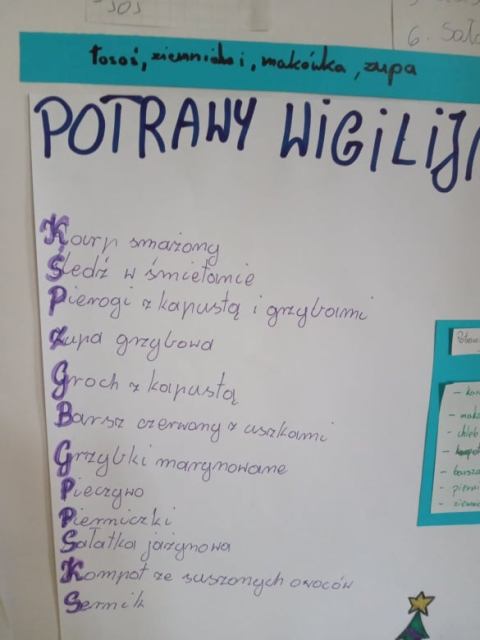 SOS
6. Sała
łosoś, ziemniaki, makówka, zupa
POTRAWY WIGILIJN
Karp smażony
Śledź w śmietanie
Pierogi z kapustą i grzybami
Zupa grzybowa
Groch z kapustą
Barsz czerwony z uszkami
Grzybki marynowane
Pieczywo
Pierniczki
Sałatka jażynowa
Kompot ze suszonych owoców
Sernik
- kar
- mak
- chleb
- kompot
- barsz
- piern
- ziemn